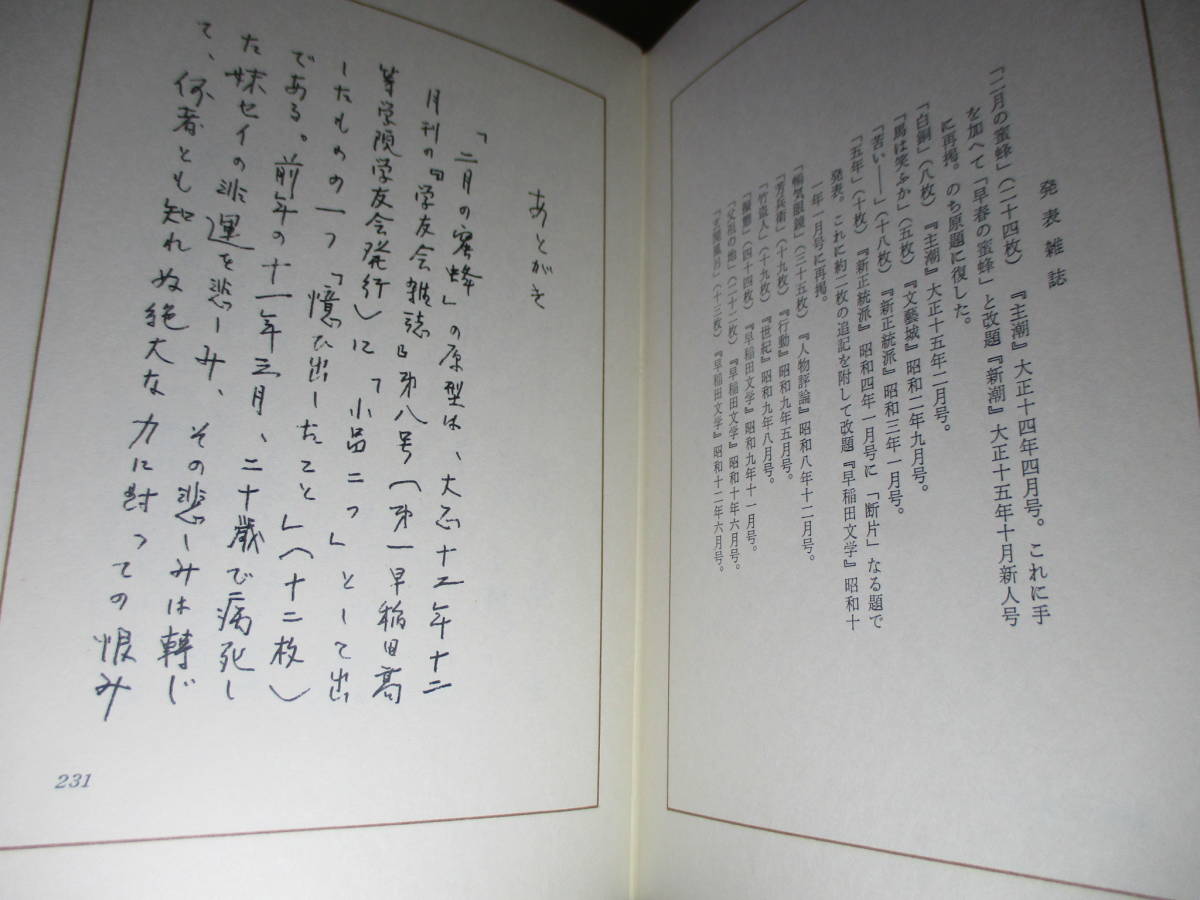 発表雑誌
「二月の蜜蜂」（二十四枚）　『主潮』大正十四年四月号。これに手
を加へて「早春の蜜蜂」と改題『新潮』大正十五年十月新人号
に再掲。のち原題に復した。
「白銅」（八枚）『主潮』大正十五年二月号。
「馬は笑ふか」（五枚）『文藝城』昭和二年九月号。
「苦い――」（十八枚）『新正統派』昭和三年一月号。
「五年」（十枚）『新正統派』昭和四年一月号に「断片」なる題で
発表。これに約二枚の追記を附して改題『早稲田文学』昭和十
一年一月号に再掲。
「暢気眼鏡」（三十五枚）『人物評論』昭和八年十二月号。
「芳兵衛」（十九枚）『行動』昭和九年五月号。
「竹盗人」（十九枚）『世紀』昭和九年八月号。
「擬態」（四十四枚）『早稲田文学』昭和九年十一月号。
「父祖の地」（二十二枚）『早稲田文学』昭和十年六月号。
「玄関風呂」（十三枚）『早稲田文学』昭和十二年六月号。
あとがき
「二月の蜜蜂」の原型は、大正十二年十二
月刊の『学友会雑誌』第八号（第一早稲田高
等学院学友会発行）に「小品二つ」として出
したものの一つ「憶ひ出したこと」（十二枚）
である。前年の十一年三月、二十歳で病死し
た妹セイの悲運を悲しみ、その悲しみは轉じ
て、何者とも知れぬ絶大な力に対っての恨み
231